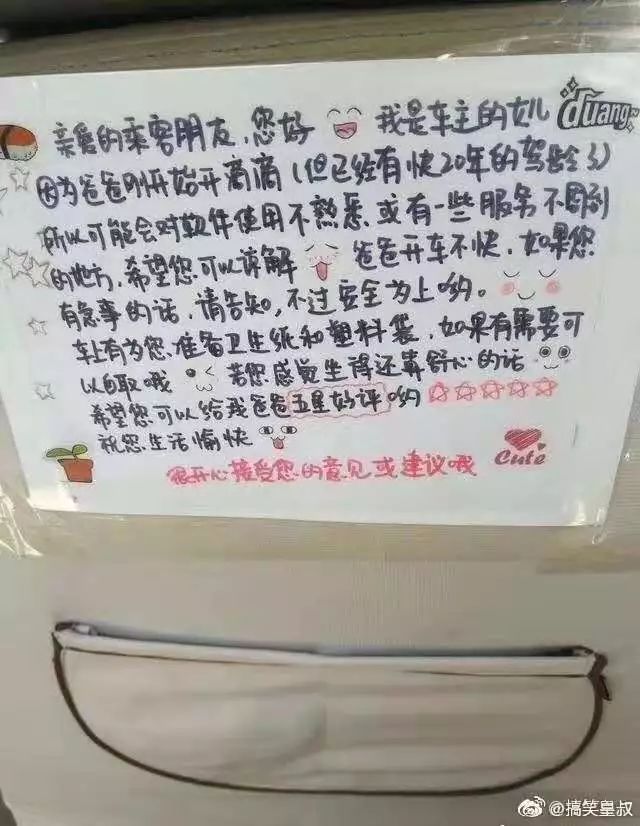 亲爱的乘客朋友,您好 我是车主的女儿 duang
因为爸爸刚开始开滴滴(但已经有快20年的驾龄了)
所以可能会对软件使用不熟悉或有一些服务不周到
的地方,希望您可以谅解 爸爸开车不快,如果您
有急事的话,请告知,不过安全为上哟。
车上有为您准备卫生纸和塑料袋,如果有需要可
以自取哦 若您感觉坐得还算舒心的话
希望您可以给我爸爸五星好评哟
祝您生活愉快
Cute
很开心接受您的意见或建议哦
@搞笑皇叔